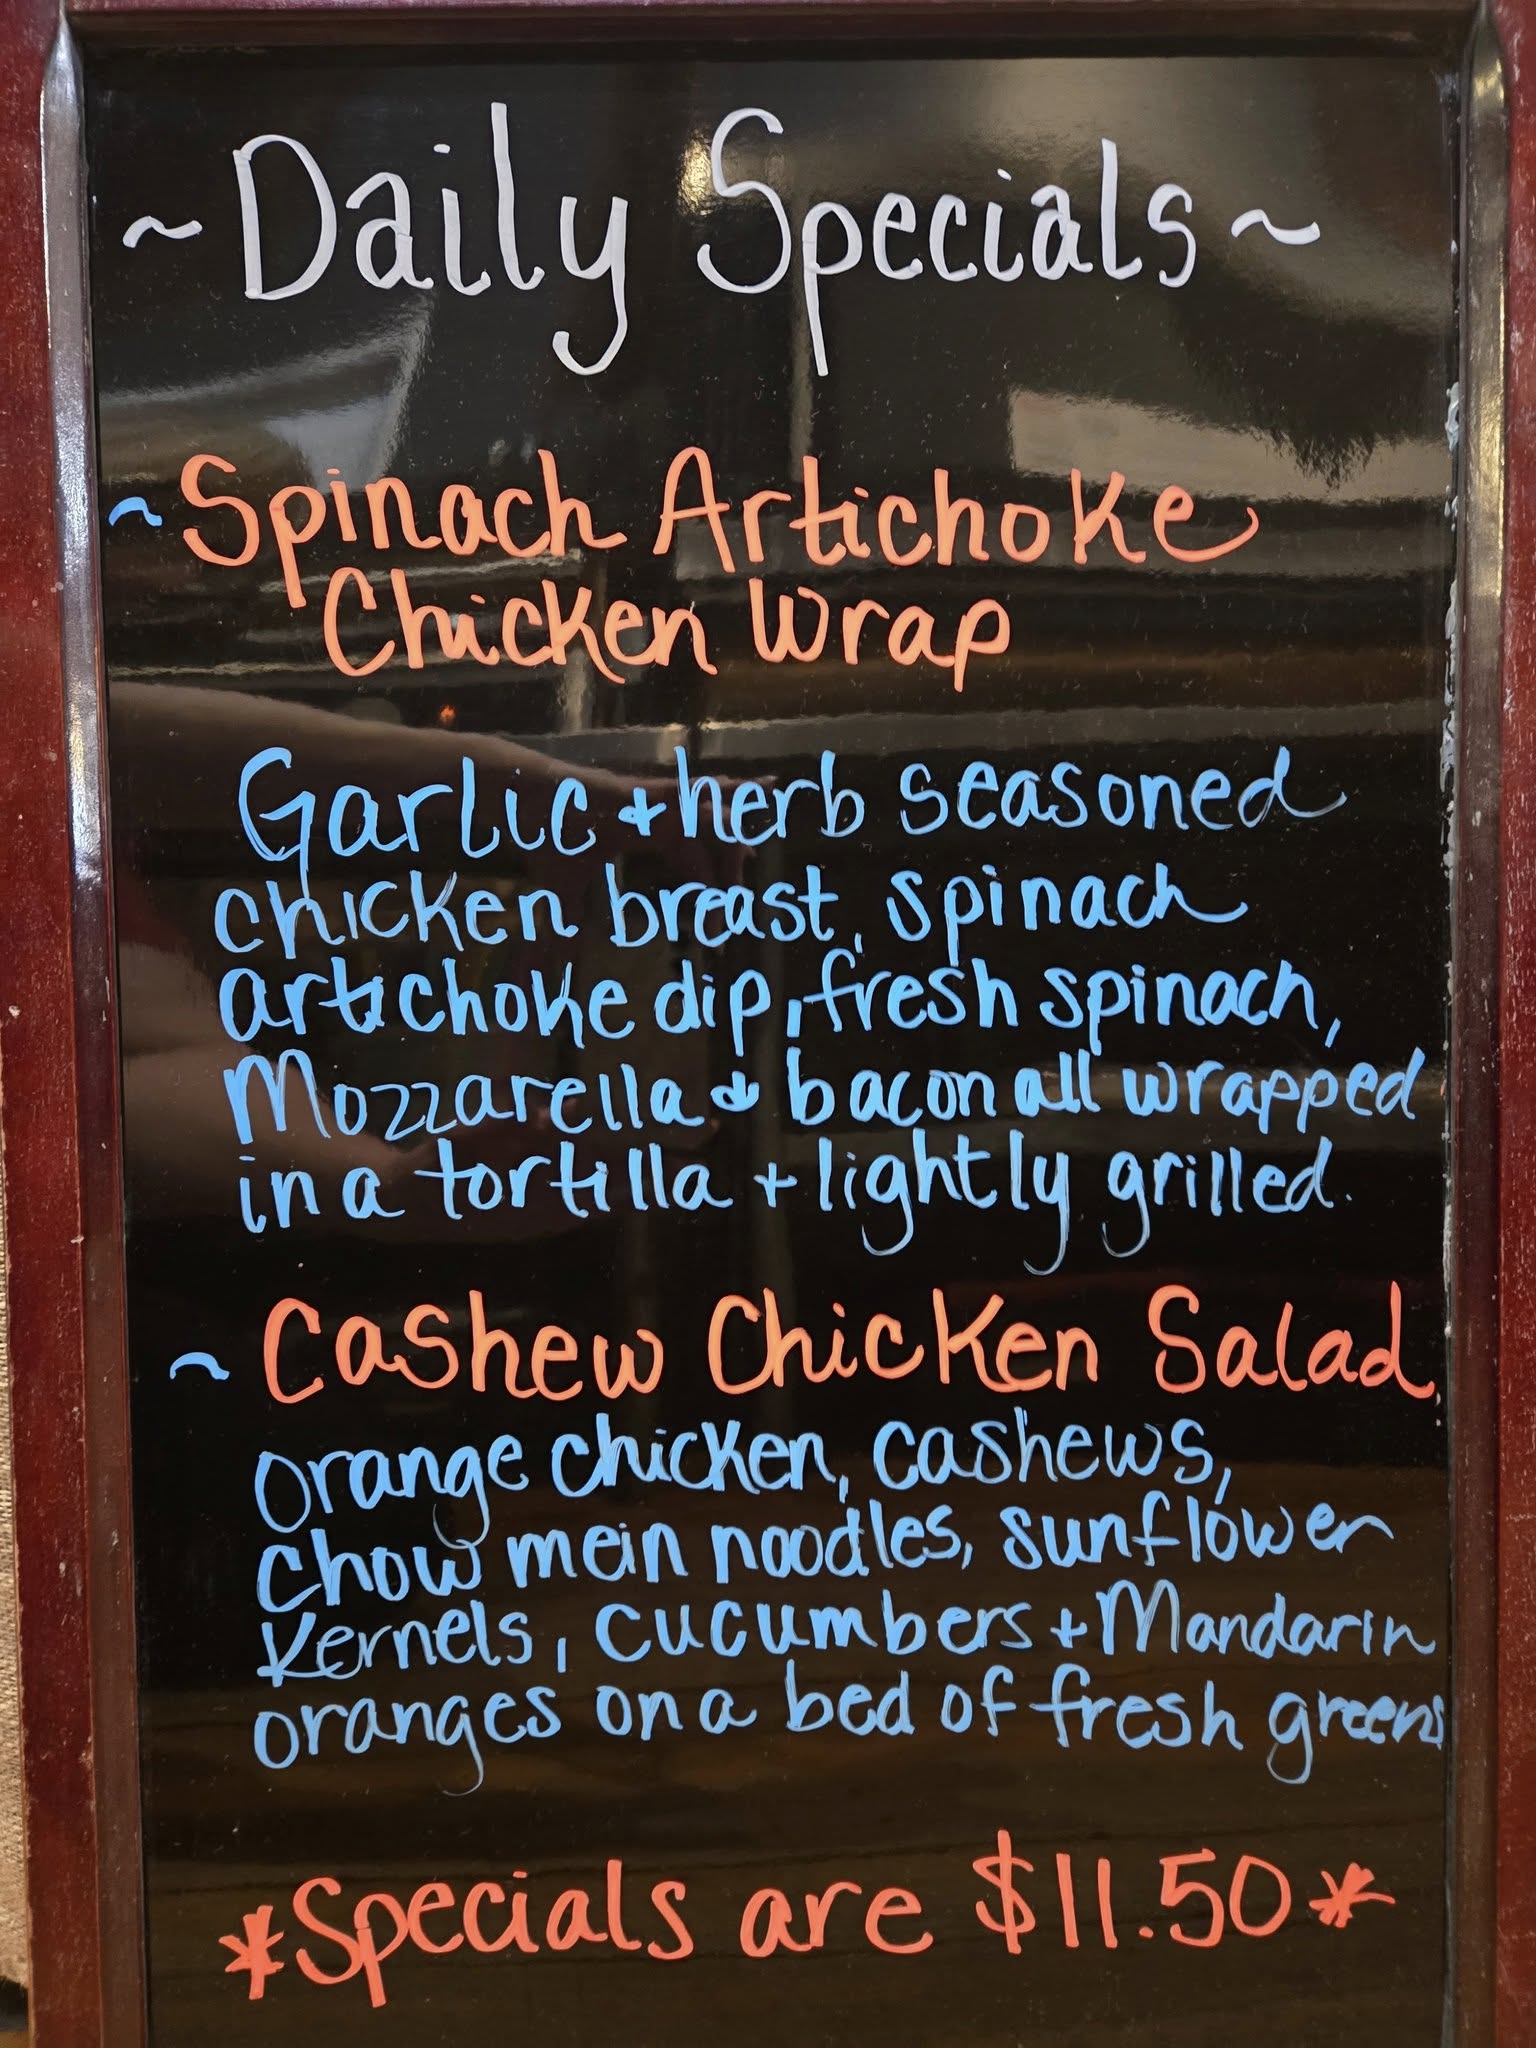 ~ Daily Specials ~
~ Spinach Artichoke
Chicken Wrap
Garlic + herb seasoned
chicken breast, spinach
artichoke dip, fresh spinach,
Mozzarella + bacon all wrapped
in a tortilla + lightly grilled.
~ Cashew Chicken Salad
Orange chicken, cashews,
chow mein noodles, sunflower
kernels, cucumbers + Mandarin
oranges on a bed of fresh greens
*Specials are $11.50*